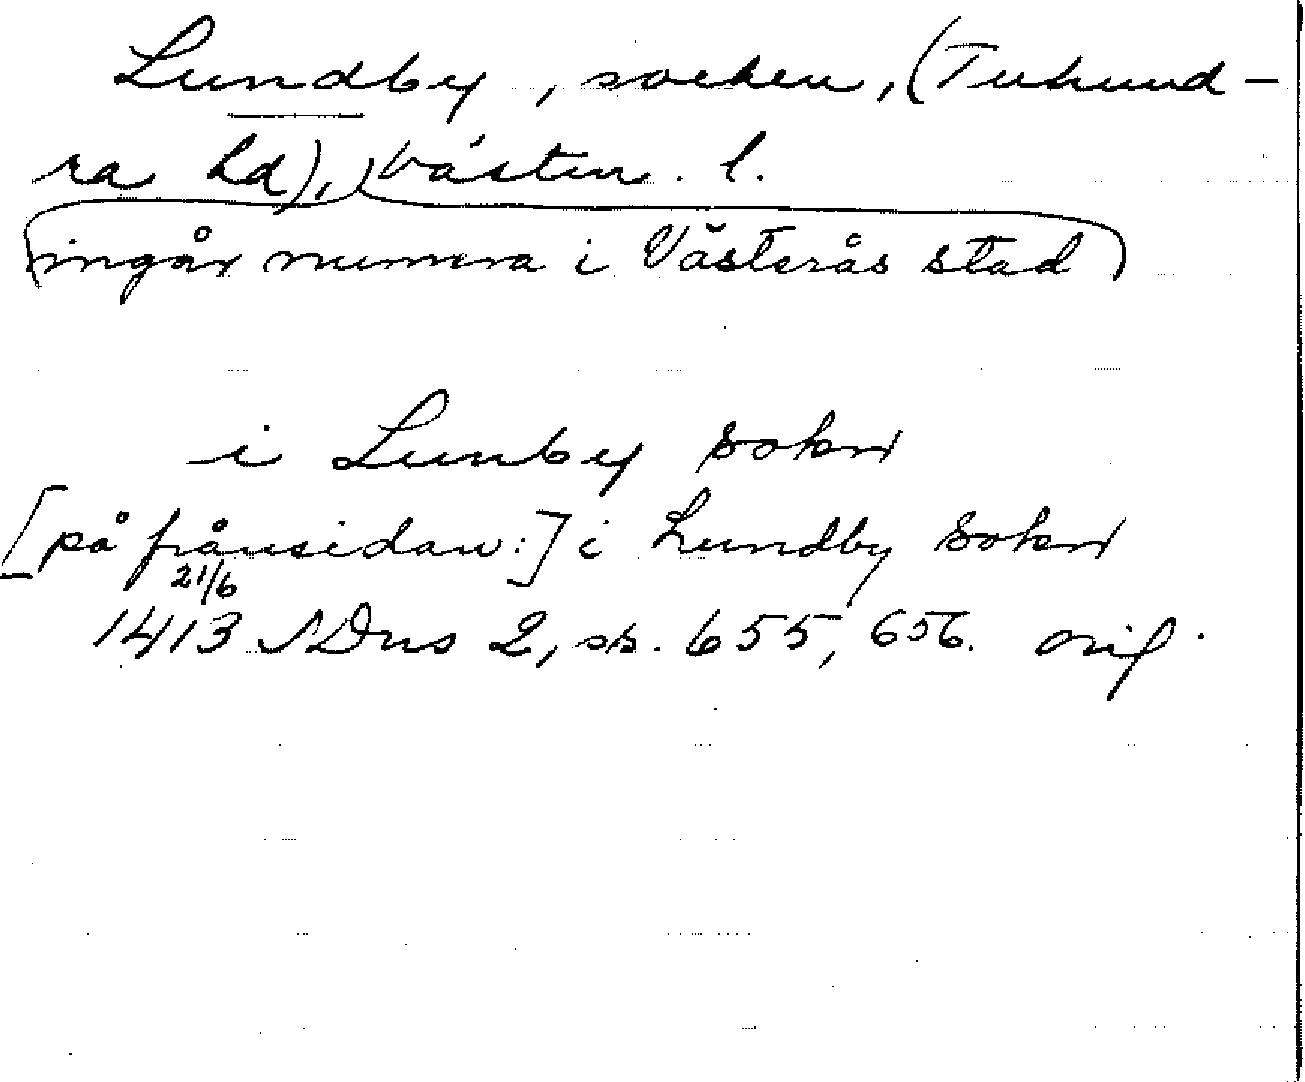 Lundby, socken, (Tuhund-
ra hd), Västm. l.
(ingår numera i Västerås stad)
i Lunby sokn
[på frånsidan:] i Lundby sokn
21/6
1413 SDns 2, sp. 655, 656. orig.